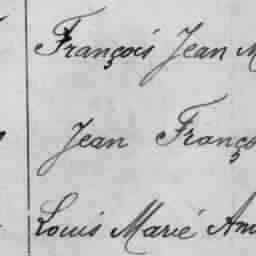 François Jean M
Jean Franço
Louis Marié Am